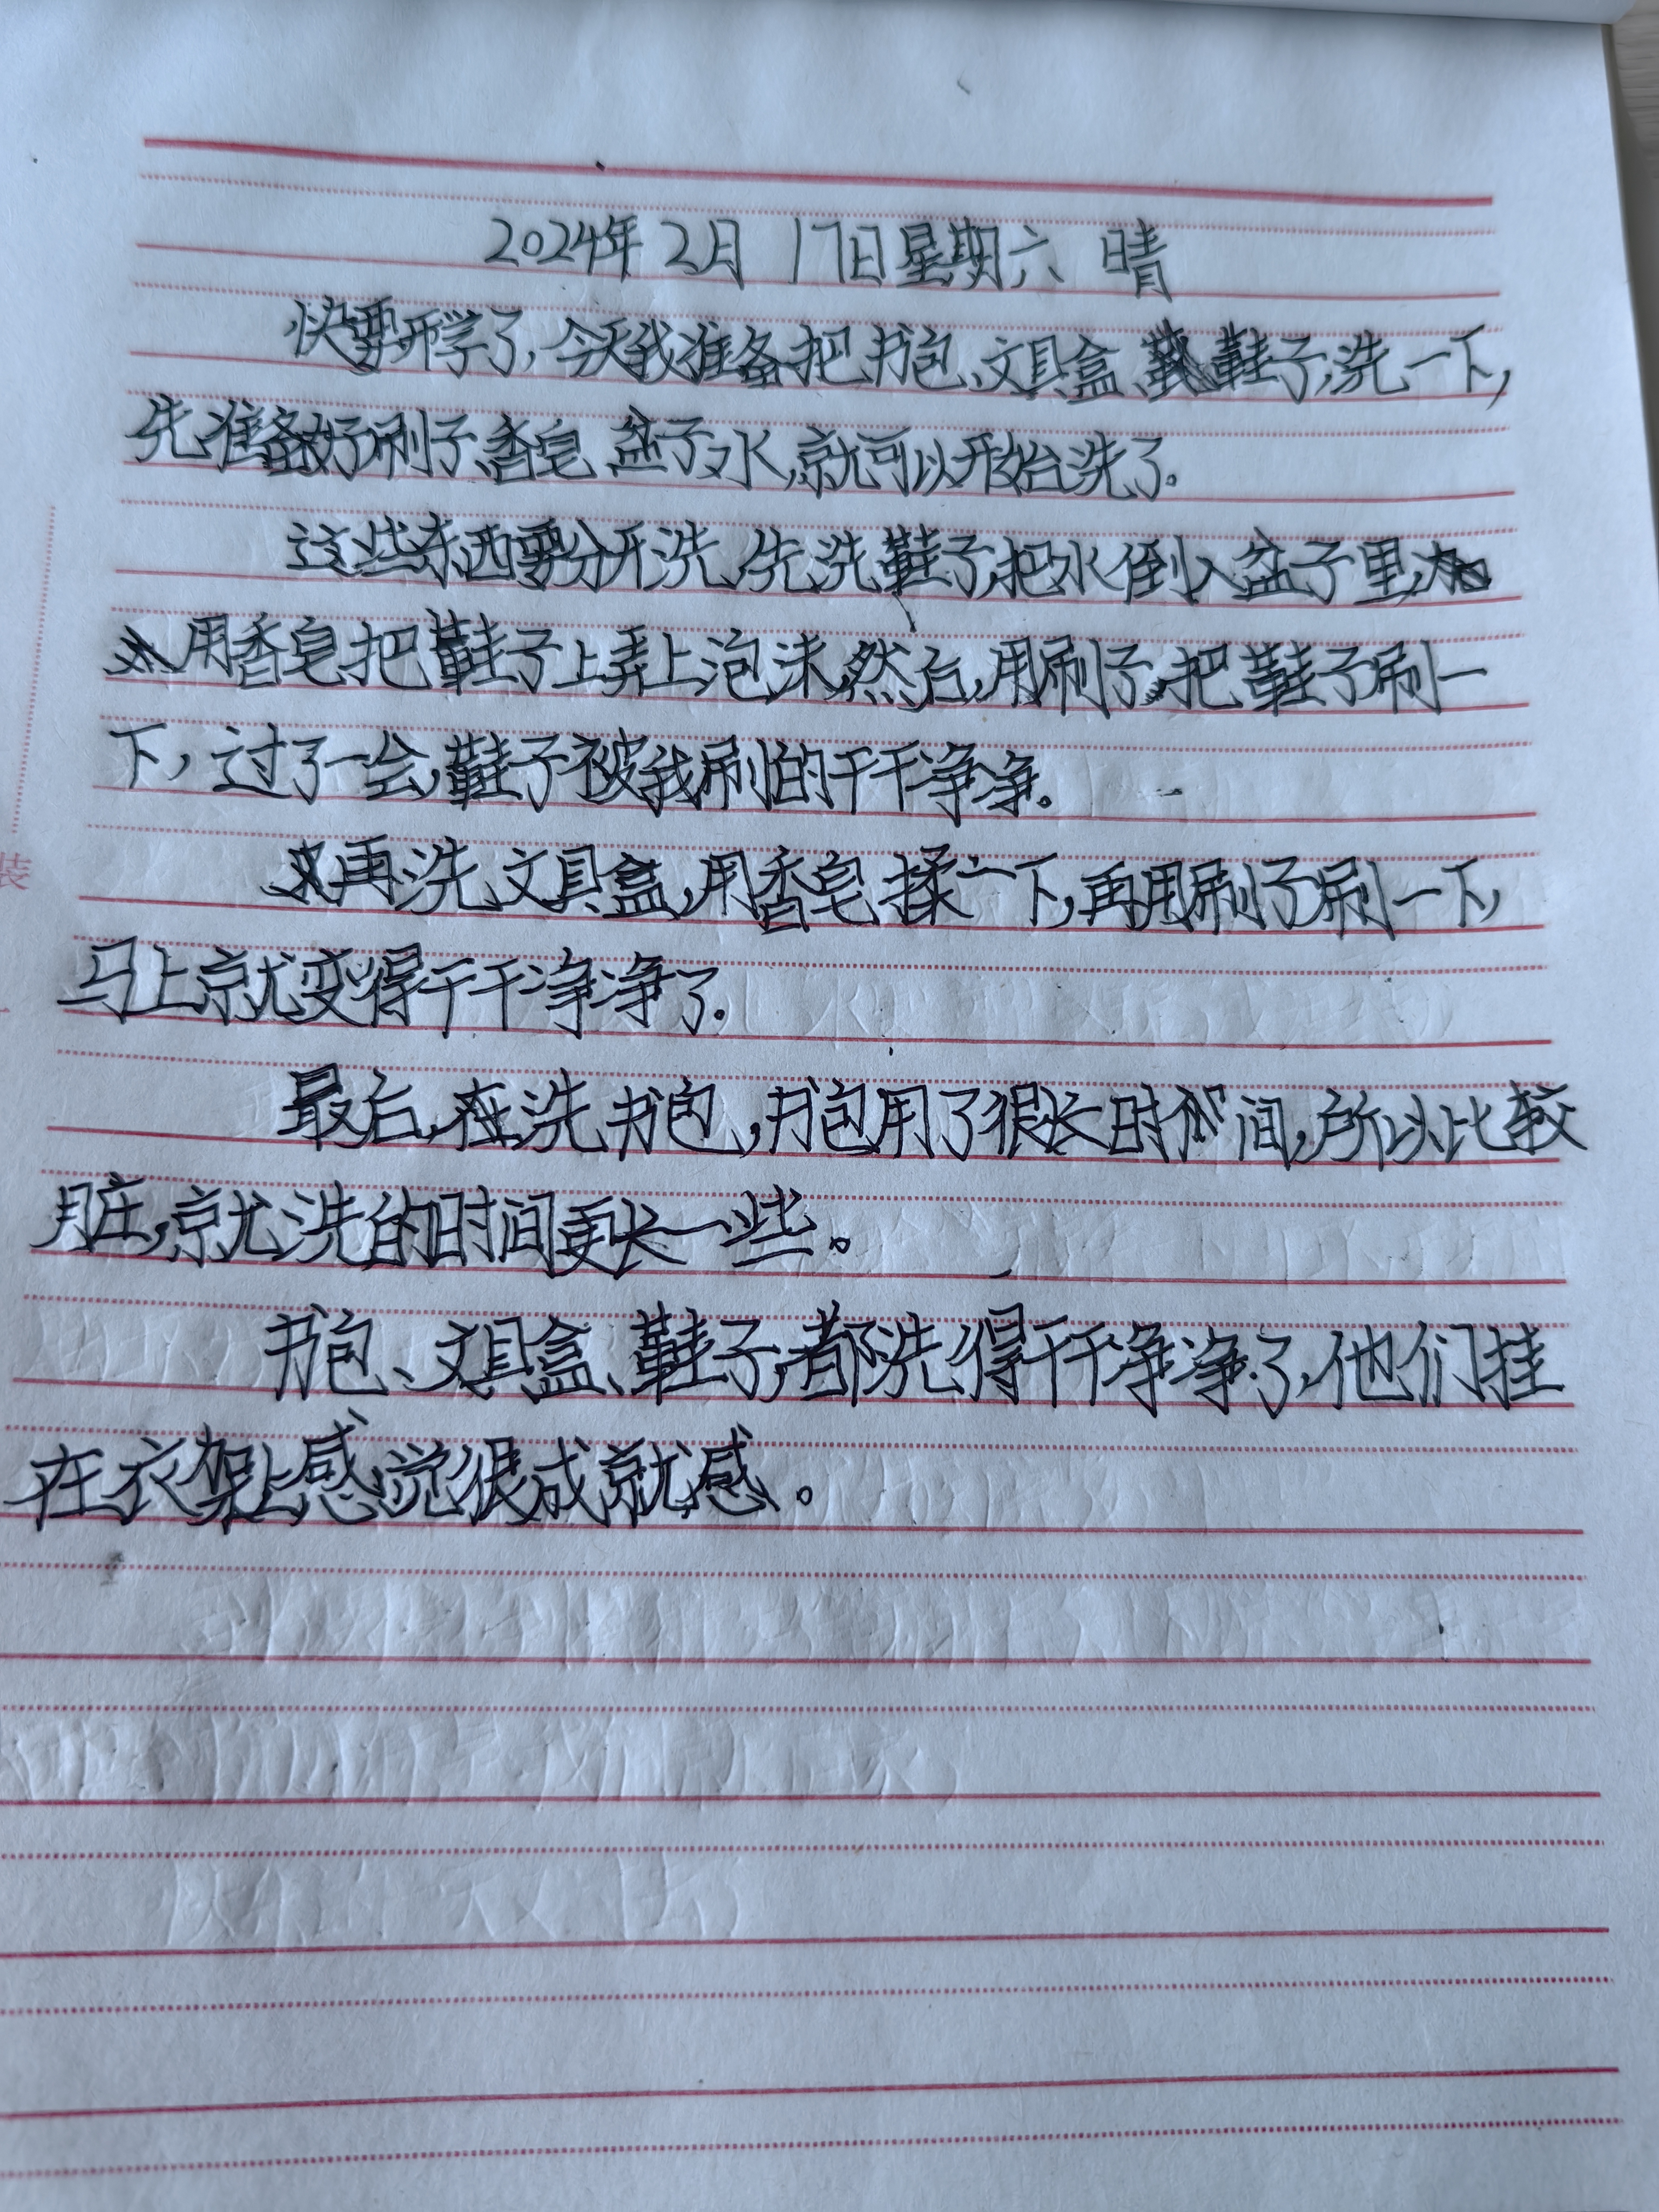 2024年2月17日星期六 晴
快要开学了,今天我准备把书包、文具盒、鞋子,洗一下,
先准备好刷子、香皂、盆子、水,就可以开始洗了。
这些东西要分开洗,先洗鞋子,把水倒入盆子里,
用香皂把鞋子上弄上泡沫,然后,用刷子,把鞋子刷一
下,过了一会,鞋子被我刷的干干净净。
再洗文具盒,用香皂揉一下,再用刷子刷一下,
马上就变得干干净净了.
最后,在洗书包,书包用了很长时间,所以比较
脏,就洗的时间更长一些。
书包、文具盒、鞋子,都洗得干干净净了,他们挂
在衣架上感觉很成就感。
装